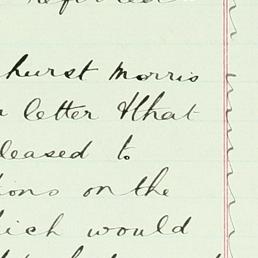 hurst Morris
letter & that
leased to
ions on the
hich would